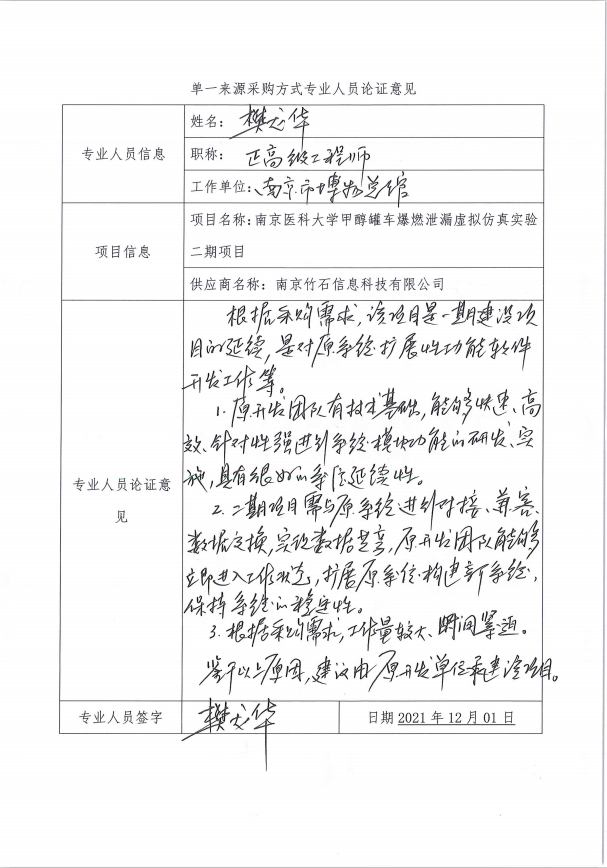 单一来源采购方式专业人员论证意见
专业人员信息
姓名：樊龙华
职称：正高级工程师
工作单位：南京市博物总馆
项目信息
项目名称：南京医科大学甲醇罐车爆燃泄漏虚拟仿真实验
二期项目
供应商名称：南京竹石信息科技有限公司
专业人员论证意
见
根据采购需求，该项目是一期建设项
目的延续，是对原系统扩展性功能软件
开发工作等。
1.原开发团队有技术基础，能够快速、高
效、针对性强进行系统模块功能的研发、实
施，具有很好的系统延续性。
2.二期项目需与原系统进行对接、兼容、
数据交换，实现数据共享，原开发团队能够
立即进入工作状态，扩展原系统构建新系统，
保持系统的稳定性。
3.根据采购需求，工作量较大、时间紧迫。
鉴于以上原因，建议由原开发单位承建该项目。
专业人员签字
樊龙华
日期 2021 年 12 月 01 日